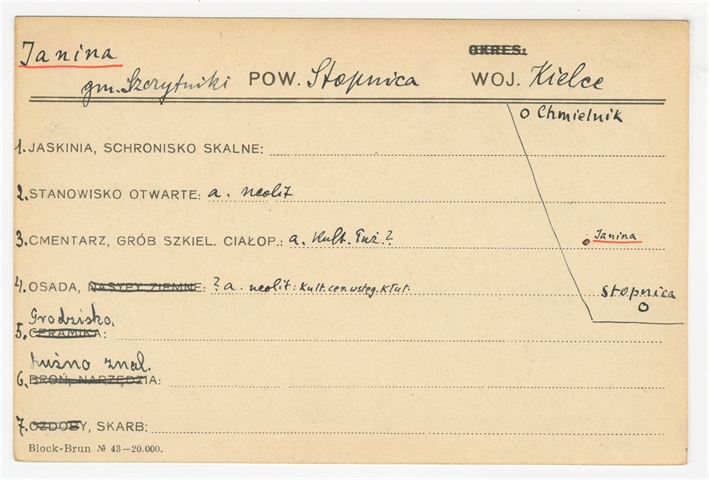 Janina
OKRES:
gm. Szczytniki POW. Stopnica WOJ. Kielce
Chmielnik
1. JASKINIA, SCHRONISKO SKALNE:
2. STANOWISKO OTWARTE: a. neolit
3. CMENTARZ, GRÓB SZKIEL. CIAŁOP.: a. Kult. Łuż.?
Janina
4. OSADA, NASYPY ZIEMNE: ? a. neolit: Kult. cer. wstęg. kłut.
Stopnica
Grodzisko.
5. CERAMIKA:
Luźno znal.
6. BROŃ, NARZĘDZIA:
7. OZDOBY, SKARB:
Block-Brun № 43—20.000.